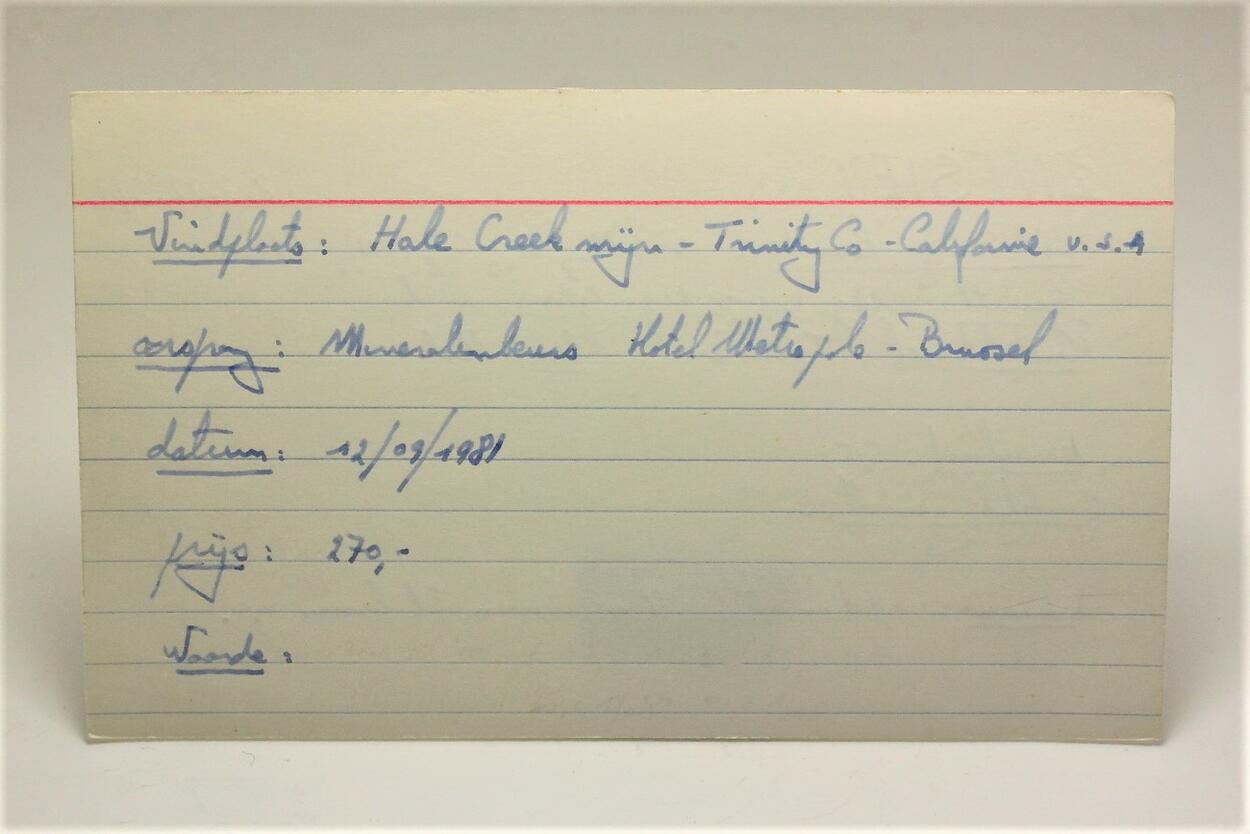 Vindplaats: Hale Creek mijn - Trinity Co - Californie U.S.A
oorspong: Mineralenbeurs Hotel Metropole - Brussel
datum: 12/09/1981
prijs: 270,-
Waarde: